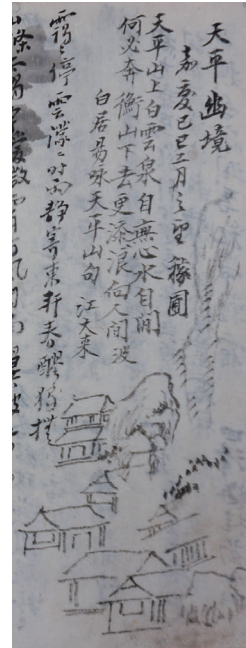 天平幽境
嘉慶己巳二月之望 稼圃
天平山上白雲泉自無心水自閒
何必奔衝山下去更添浪向人間波
白居易咏天平山句 江大来
靄〻停雲濛〻時雨靜寄東軒春醪獨撫